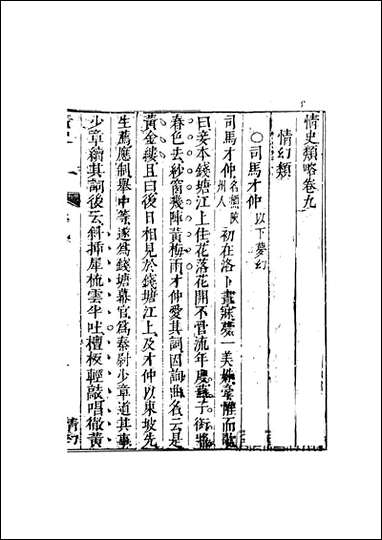 情史類略卷九
情幻類
○司馬才仲 以下夢幻
司馬才仲 名槱陝州人 初在洛下晝寢夢一美姝牽帷而歌
曰妾本錢塘江上住花落花開不管流年度燕子銜將
春色去紗窗幾陣黃梅雨才仲愛其詞因詢曲名云是
黃金縷且曰後日相見於錢塘江上及才仲以東坡先
生薦應制舉中等遂為錢塘幕官為秦尉少章道其事
少章續其詞後云斜插犀梳雲半吐檀板輕敲唱徹黃
情幻